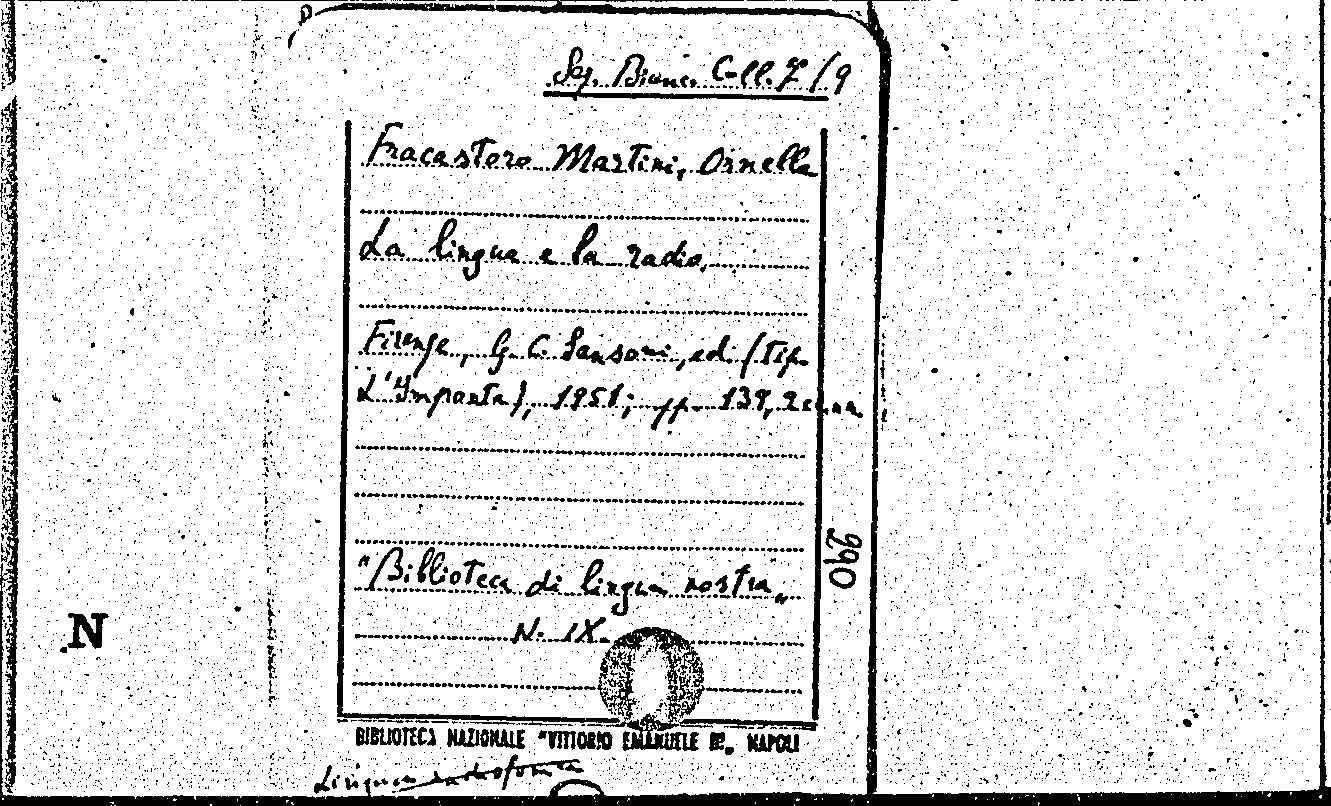 Seq. Bianc. Coll. Z/9
Fracastoro Martini, Ornella
La lingua e la radio.
Firenze, G. C. Sansoni, ed. (tip.
L'Impronta), 1951; pp. 139,
"Biblioteca di lingua nostra„
N. IX.
290
N
BIBLIOTECA NAZIONALE "VITTORIO EMANUELE III„ NAPOLI
Lingua radiofonica